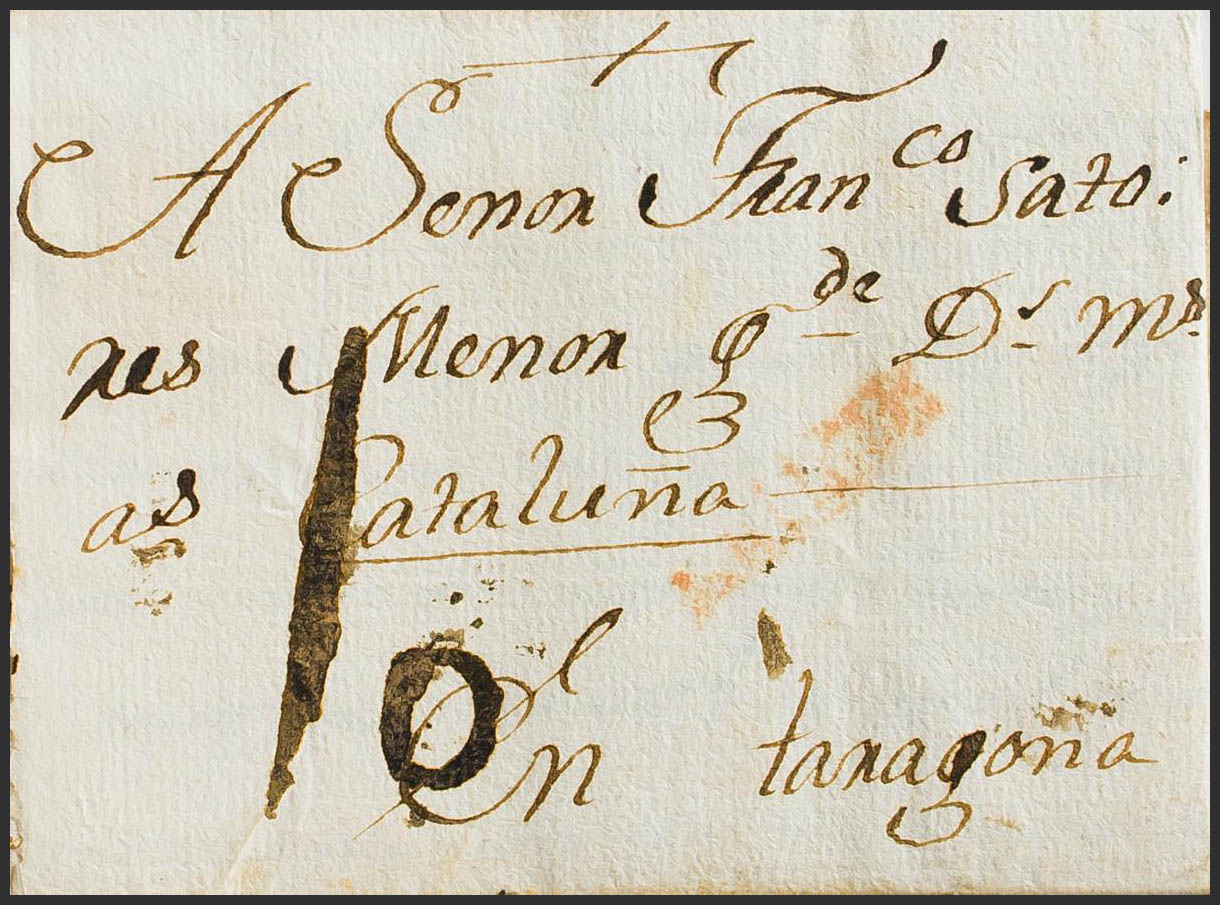 A Señor Fran.co Sato:
res Menor g.de D.s m.s
a.s Cataluña
10
En taragona